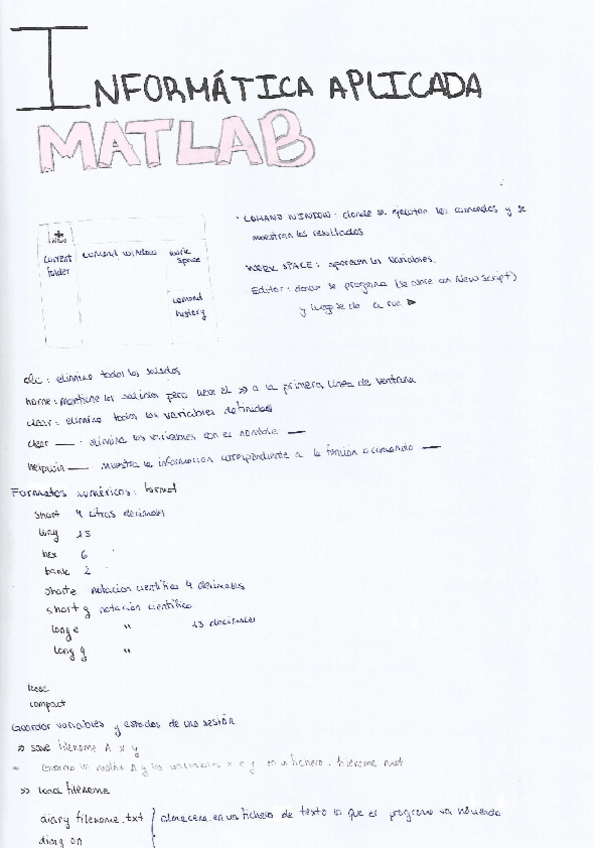 INFORMÁTICA APLICADA
MATLAB
current folder
comand window
work space
comand history
• COMAND WINDOW: donde se ejecutan los comandos y se
muestran los resultados
WORK SPACE: aparecen las variables.
Editor: donde se programa (se abre con New Script)
y luego se da a run ▷
clc: elimina todas las salidas
home: mantiene las salidas pero lleva el >> a la primera línea de ventana
clear: elimina todas las variables definidas
clear ___: elimina las variables con el nombre ___
helpwin ___ muestra la información correspondiente a la función o comando ___
Formatos numéricos: format
short 4 cifras decimales
long 15
hex 6
bank 2
short e notación científica 4 decimales
short g notación científica
long e " 15 decimales
long g "
loose
compact
Guardar variables y estados de una sesión
>> save filename A x y
Guarda la matriz A y las variables x e y en un fichero. filename.mat
>> load filename
diary filename.txt
diary on
almacena en un fichero de texto lo que el programa va haciendo